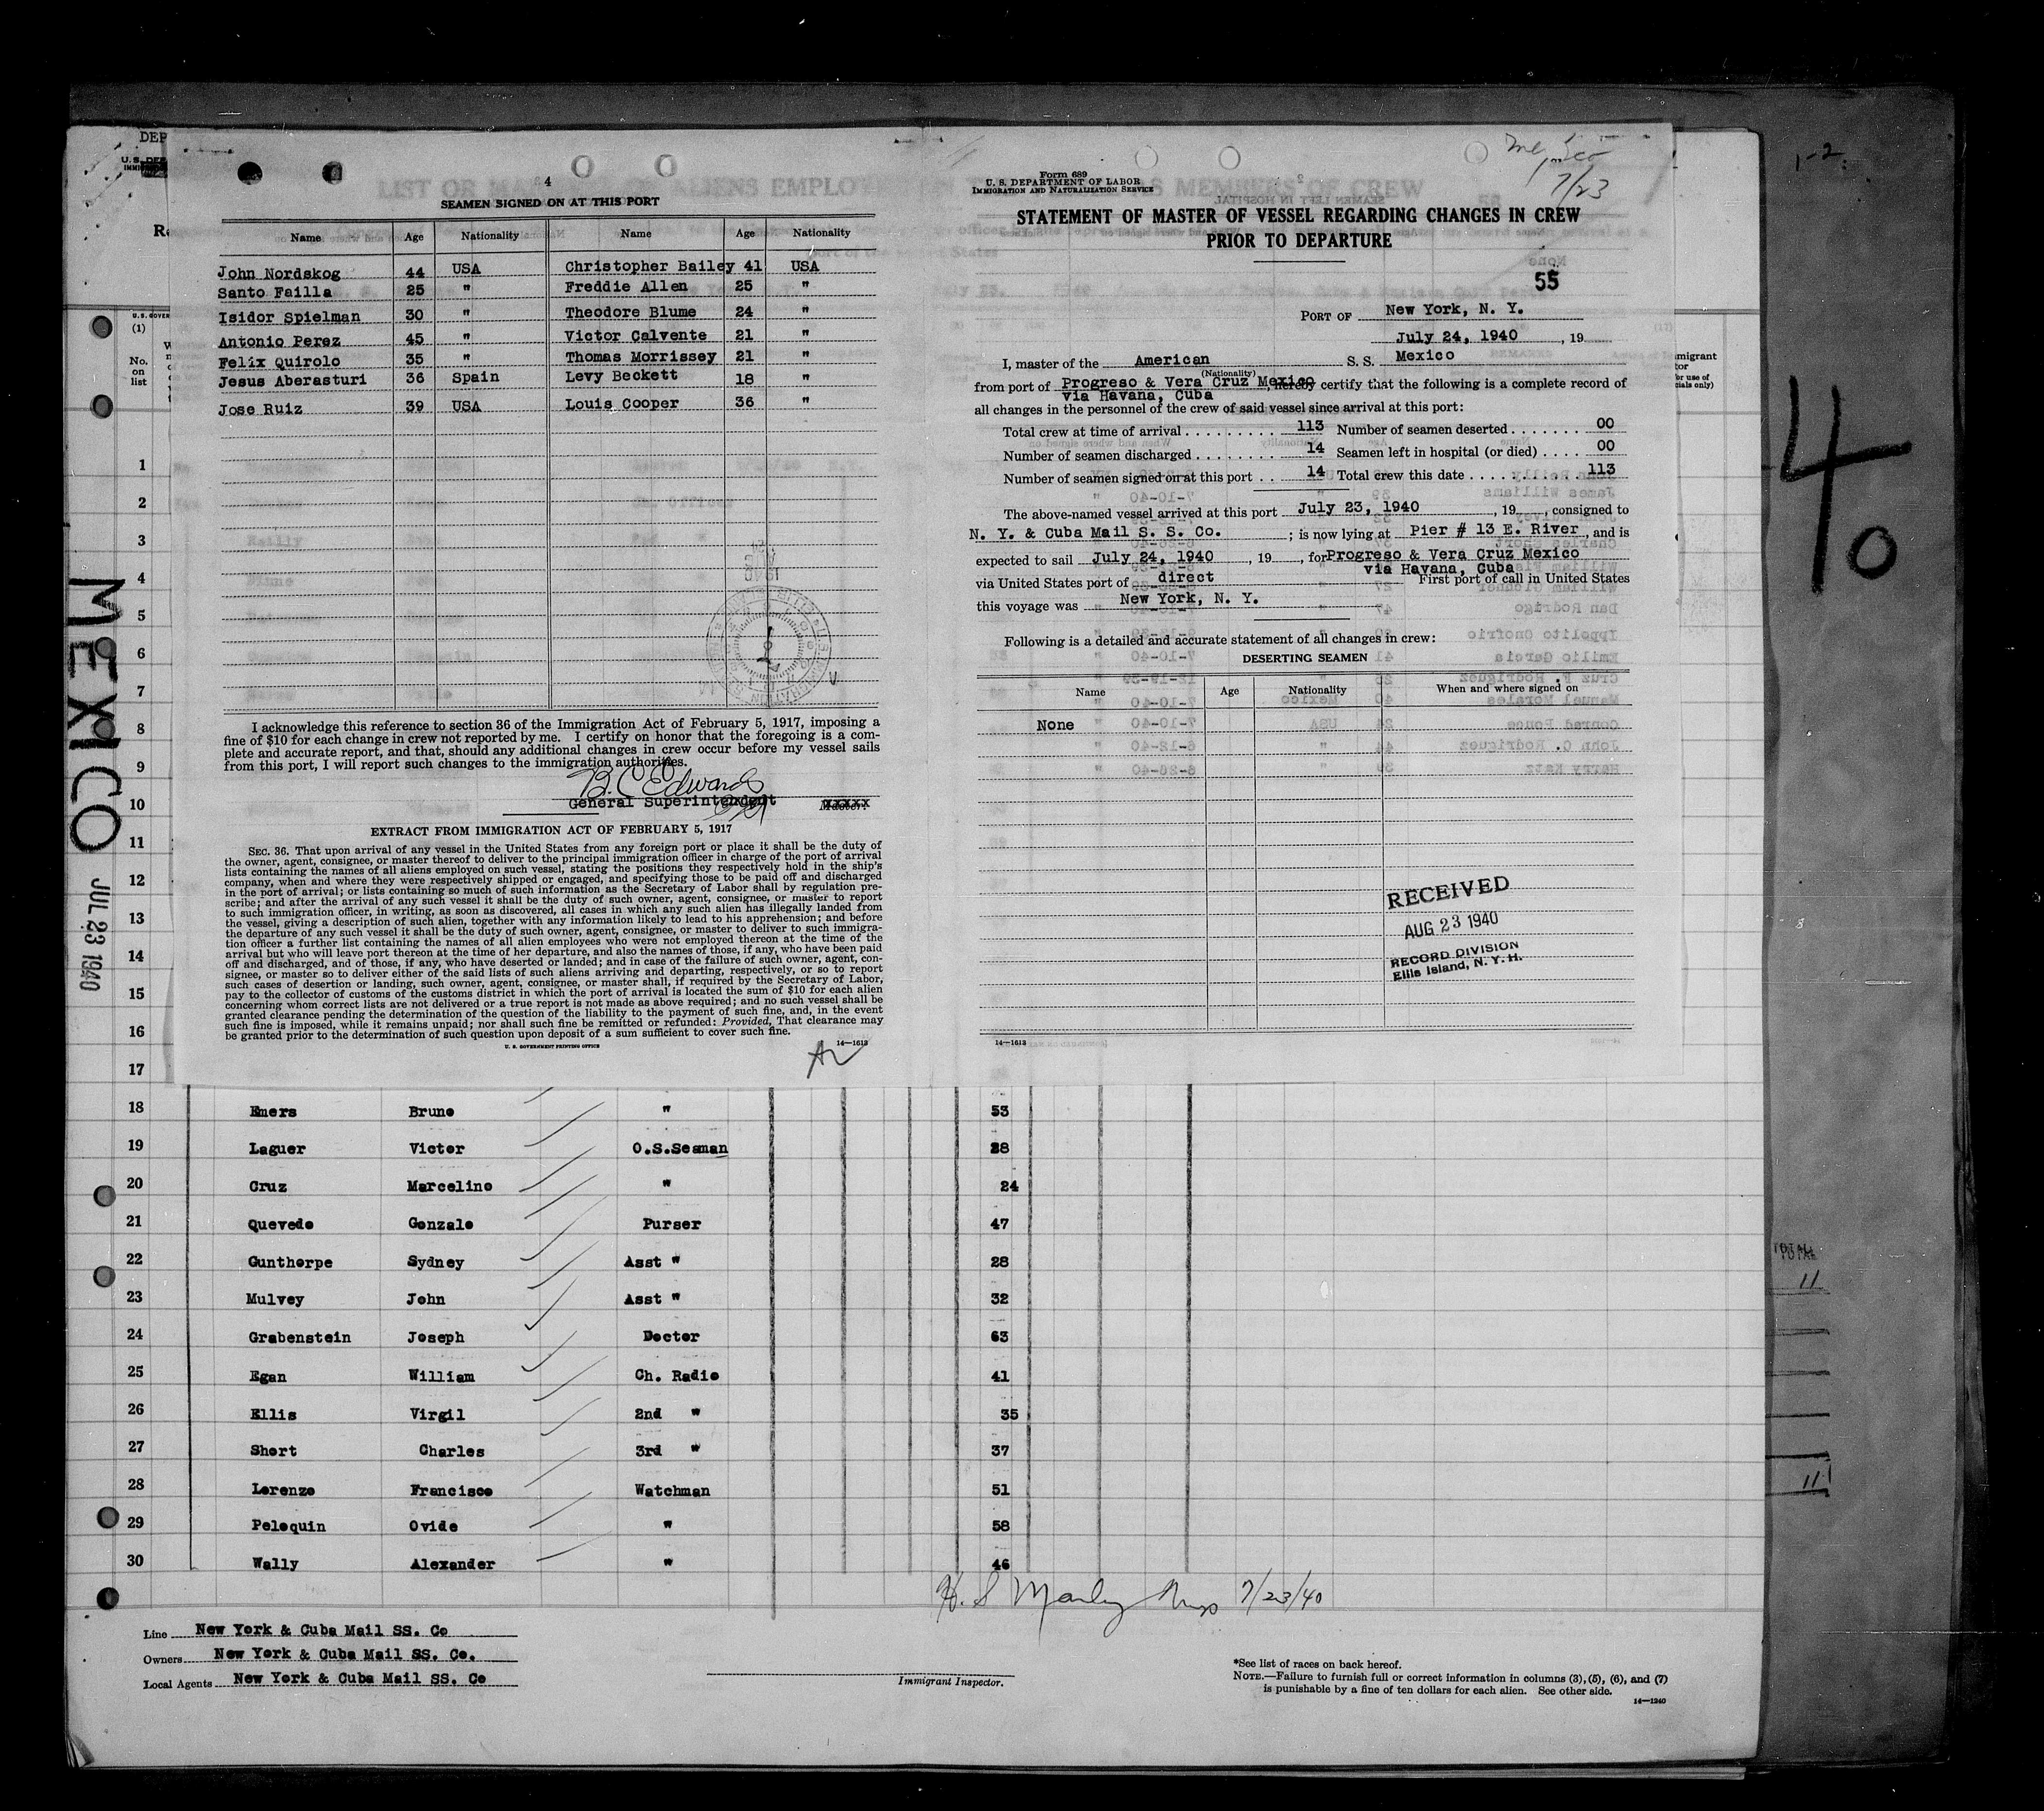 4
SEAMEN SIGNED ON AT THIS PORT
Name Age Nationality Name Age Nationality
John Nordskog 44 USA Christopher Bailey 41 USA
Santo Failla 25 " Freddie Allen 25 "
Isidor Spielman 30 " Theodore Blume 24 "
Antonio Perez 45 " Victor Calvente 21 "
Felix Quirolo 35 " Thomas Morrissey 21 "
Jesus Aberasturi 36 Spain Levy Beckett 18 "
Jose Ruiz 39 USA Louis Cooper 36 "
I acknowledge this reference to section 36 of the Immigration Act of February 5, 1917, imposing a
fine of $10 for each change in crew not reported by me. I certify on honor that the foregoing is a com-
plete and accurate report, and that, should any additional changes in crew occur before my vessel sails
from this port, I will report such changes to the immigration authorities.
B. C. Edwards
General Superintendent
EXTRACT FROM IMMIGRATION ACT OF FEBRUARY 5, 1917
SEC. 36. That upon arrival of any vessel in the United States from any foreign port or place it shall be the duty of
the owner, agent, consignee, or master thereof to deliver to the principal immigration officer in charge of the port of arrival
lists containing the names of all aliens employed on such vessel, stating the positions they respectively hold in the ship's
company, when and where they were respectively shipped or engaged, and specifying those to be paid off and discharged
in the port of arrival; or lists containing so much of such information as the Secretary of Labor shall by regulation pre-
scribe; and after the arrival of any such vessel it shall be the duty of such owner, agent, consignee, or master to report
to such immigration officer, in writing, as soon as discovered, all cases in which any such alien has illegally landed from
the vessel, giving a description of such alien, together with any information likely to lead to his apprehension; and before
the departure of any such vessel it shall be the duty of such owner, agent, consignee, or master to deliver to such immigra-
tion officer a further list containing the names of all alien employees who were not employed thereon at the time of the
arrival but who will leave port thereon at the time of her departure, and also the names of those, if any, who have been paid
off and discharged, and of those, if any, who have deserted or landed; and in case of the failure of such owner, agent, con-
signee, or master so to deliver either of the said lists of such aliens arriving and departing, respectively, or so to report
such cases of desertion or landing, such owner, agent, consignee, or master shall, if required by the Secretary of Labor,
pay to the collector of customs of the customs district in which the port of arrival is located the sum of $10 for each alien
concerning whom correct lists are not delivered or a true report is not made as above required; and no such vessel shall be
granted clearance pending the determination of the question of the liability to the payment of such fine, and, in the event
such fine is imposed, while it remains unpaid; nor shall such fine be remitted or refunded: Provided, That clearance may
be granted prior to the determination of such question upon deposit of a sum sufficient to cover such fine.
U. S. GOVERNMENT PRINTING OFFICE 14—1613
Form 689
U. S. DEPARTMENT OF LABOR
IMMIGRATION AND NATURALIZATION SERVICE
7/23
STATEMENT OF MASTER OF VESSEL REGARDING CHANGES IN CREW
PRIOR TO DEPARTURE
55
PORT OF New York, N. Y.
July 24, 1940, 19
I, master of the American S. S. Mexico
(Nationality)
from port of Progreso & Vera Cruz Mexico, hereby certify that the following is a complete record of
via Havana, Cuba
all changes in the personnel of the crew of said vessel since arrival at this port:
Total crew at time of arrival 113 Number of seamen deserted 00
Number of seamen discharged 14 Seamen left in hospital (or died) 00
Number of seamen signed on at this port 14 Total crew this date 113
The above-named vessel arrived at this port July 23, 1940, 19, consigned to
N. Y. & Cuba Mail S. S. Co.; is now lying at Pier # 13 E. River, and is
expected to sail July 24, 1940, 19, for Progreso & Vera Cruz Mexico
via Havana, Cuba
via United States port of direct First port of call in United States
this voyage was New York, N. Y.
Following is a detailed and accurate statement of all changes in crew:
DESERTING SEAMEN
Name Age Nationality When and where signed on
None
RECEIVED
AUG 23 1940
RECORD DIVISION
Ellis Island, N. Y. H.
14—1613
40
1-2
MEXICO
JUL 23 1940
(1)
No.
on
list
1
2
3
4
5
6
7
8
9
10
11
12
13
14
15
16
17
18 Emers Bruno " 53
19 Laguer Victor O.S.Seaman 28
20 Cruz Marcelino " 24
21 Quevedo Gonzalo Purser 47
22 Gunthorpe Sydney Asst " 28
23 Mulvey John Asst " 32
24 Grabenstein Joseph Doctor 63
25 Egan William Ch. Radio 41
26 Ellis Virgil 2nd " 35
27 Short Charles 3rd " 37
28 Lorenzo Francisco Watchman 51
29 Pelequin Ovide " 58
30 Wally Alexander " 46
TOTAL
11
11
7/23/40
Line New York & Cuba Mail SS. Co
Owners New York & Cuba Mail SS. Co.
Local Agents New York & Cuba Mail SS. Co
Immigrant Inspector.
*See list of races on back hereof.
NOTE.—Failure to furnish full or correct information in columns (3), (5), (6), and (7)
is punishable by a fine of ten dollars for each alien. See other side.
14—1240